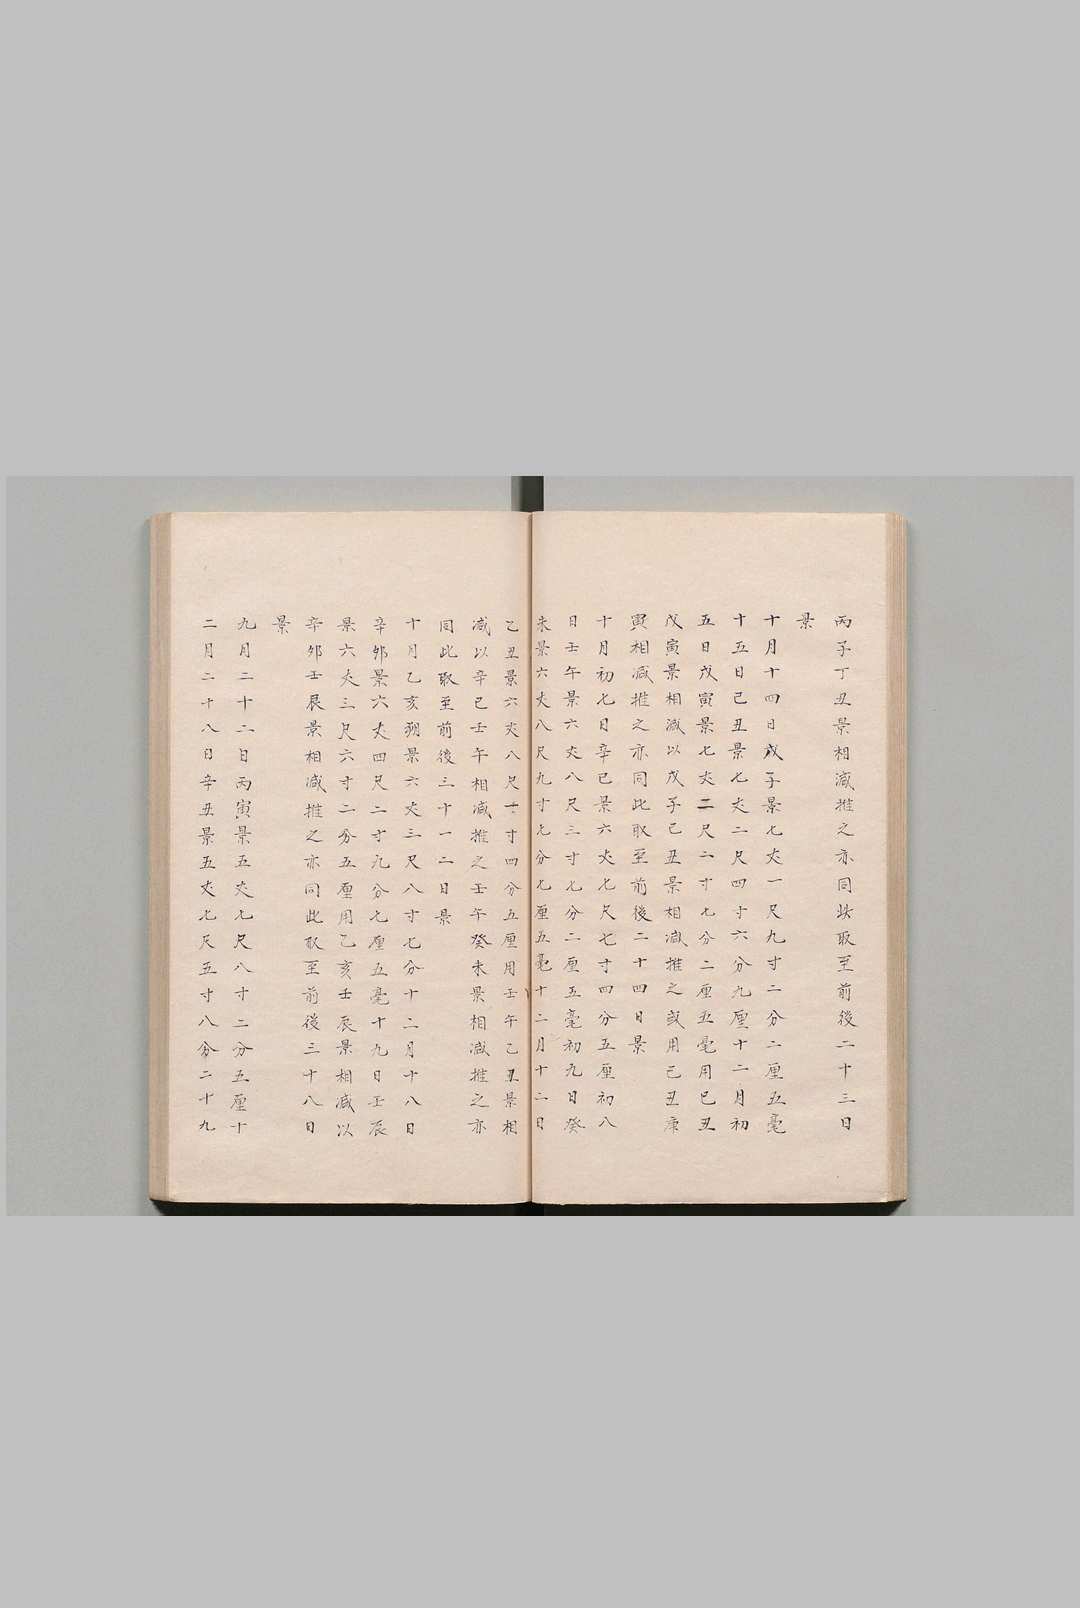 丙子丁丑景相減推之亦同此取至前後二十三日
景
十月十四日戊子景七丈一尺九寸二分二厘五毫
十五日己丑景七丈二尺四寸六分九厘十二月初
五日戊寅景七丈二尺二寸七分二厘五毫用巳丑
戊寅景相減以戊子己丑景相減推之或用己丑庚
寅相減推之亦同此取至前後二十四日景
十月初七日辛巳景六丈七尺七寸四分五厘初八
日壬午景六丈八尺三寸七分二厘五毫初九日癸
未景六丈八尺九寸七分七厘五毫十二月十二日
乙丑景六丈八尺一寸四分五厘用壬午乙丑景相
減以辛巳壬午相減推之壬午癸未景相減推之亦
同此取至前後三十一二日景
十月乙亥朔景六丈三尺八寸七分十二月十八日
辛卯景六丈四尺二寸九分七厘五毫十九日壬辰
景六丈三尺六寸二分五厘用乙亥壬辰景相減以
辛卯壬辰景相減推之亦同此取至前後三十八日
景
九月二十二日丙寅景五丈七尺八寸二分五厘十
二月二十八日辛丑景五丈七尺五寸八分二十九